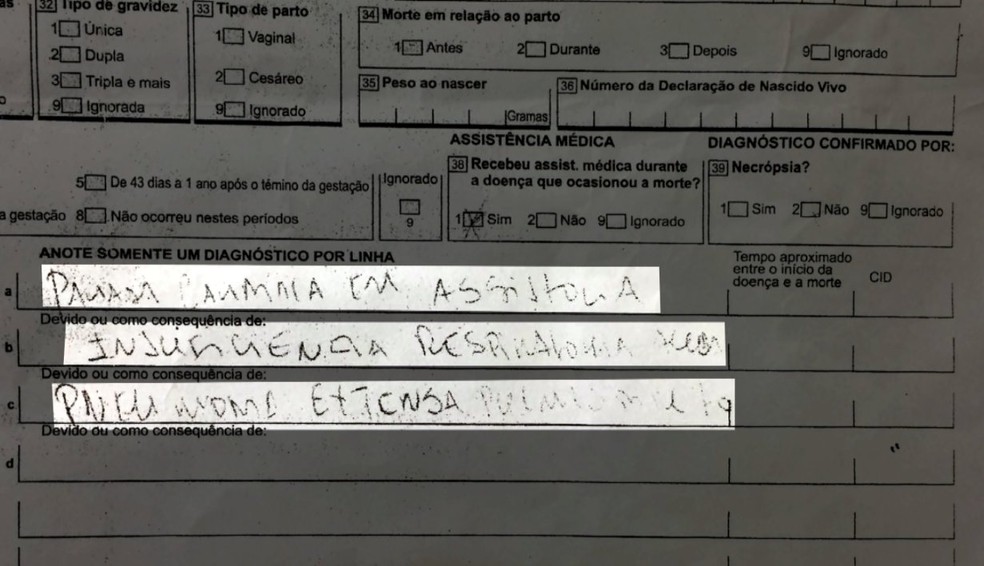 32 Tipo de gravidez
1 Única
2 Dupla
3 Tripla e mais
9 Ignorada
33 Tipo de parto
1 Vaginal
2 Cesáreo
9 Ignorado
34 Morte em relação ao parto
1 Antes 2 Durante 3 Depois 9 Ignorado
35 Peso ao nascer
Gramas
36 Número da Declaração de Nascido Vivo
ASSISTÊNCIA MÉDICA
DIAGNÓSTICO CONFIRMADO POR:
5 De 43 dias a 1 ano após o témino da gestação
a gestação 8 Não ocorreu nestes períodos
Ignorado
9
38 Recebeu assist. médica durante
a doença que ocasionou a morte?
1 Sim 2 Não 9 Ignorado
39 Necrópsia?
1 Sim 2 Não 9 Ignorado
ANOTE SOMENTE UM DIAGNÓSTICO POR LINHA
Tempo aproximado
entre o início da
doença e a morte
CID
a EM ASSISTOLIA
Devido ou como consequência de:
b RESPIRATORIA
Devido ou como consequência de:
c EXTENSA
Devido ou como consequência de:
d